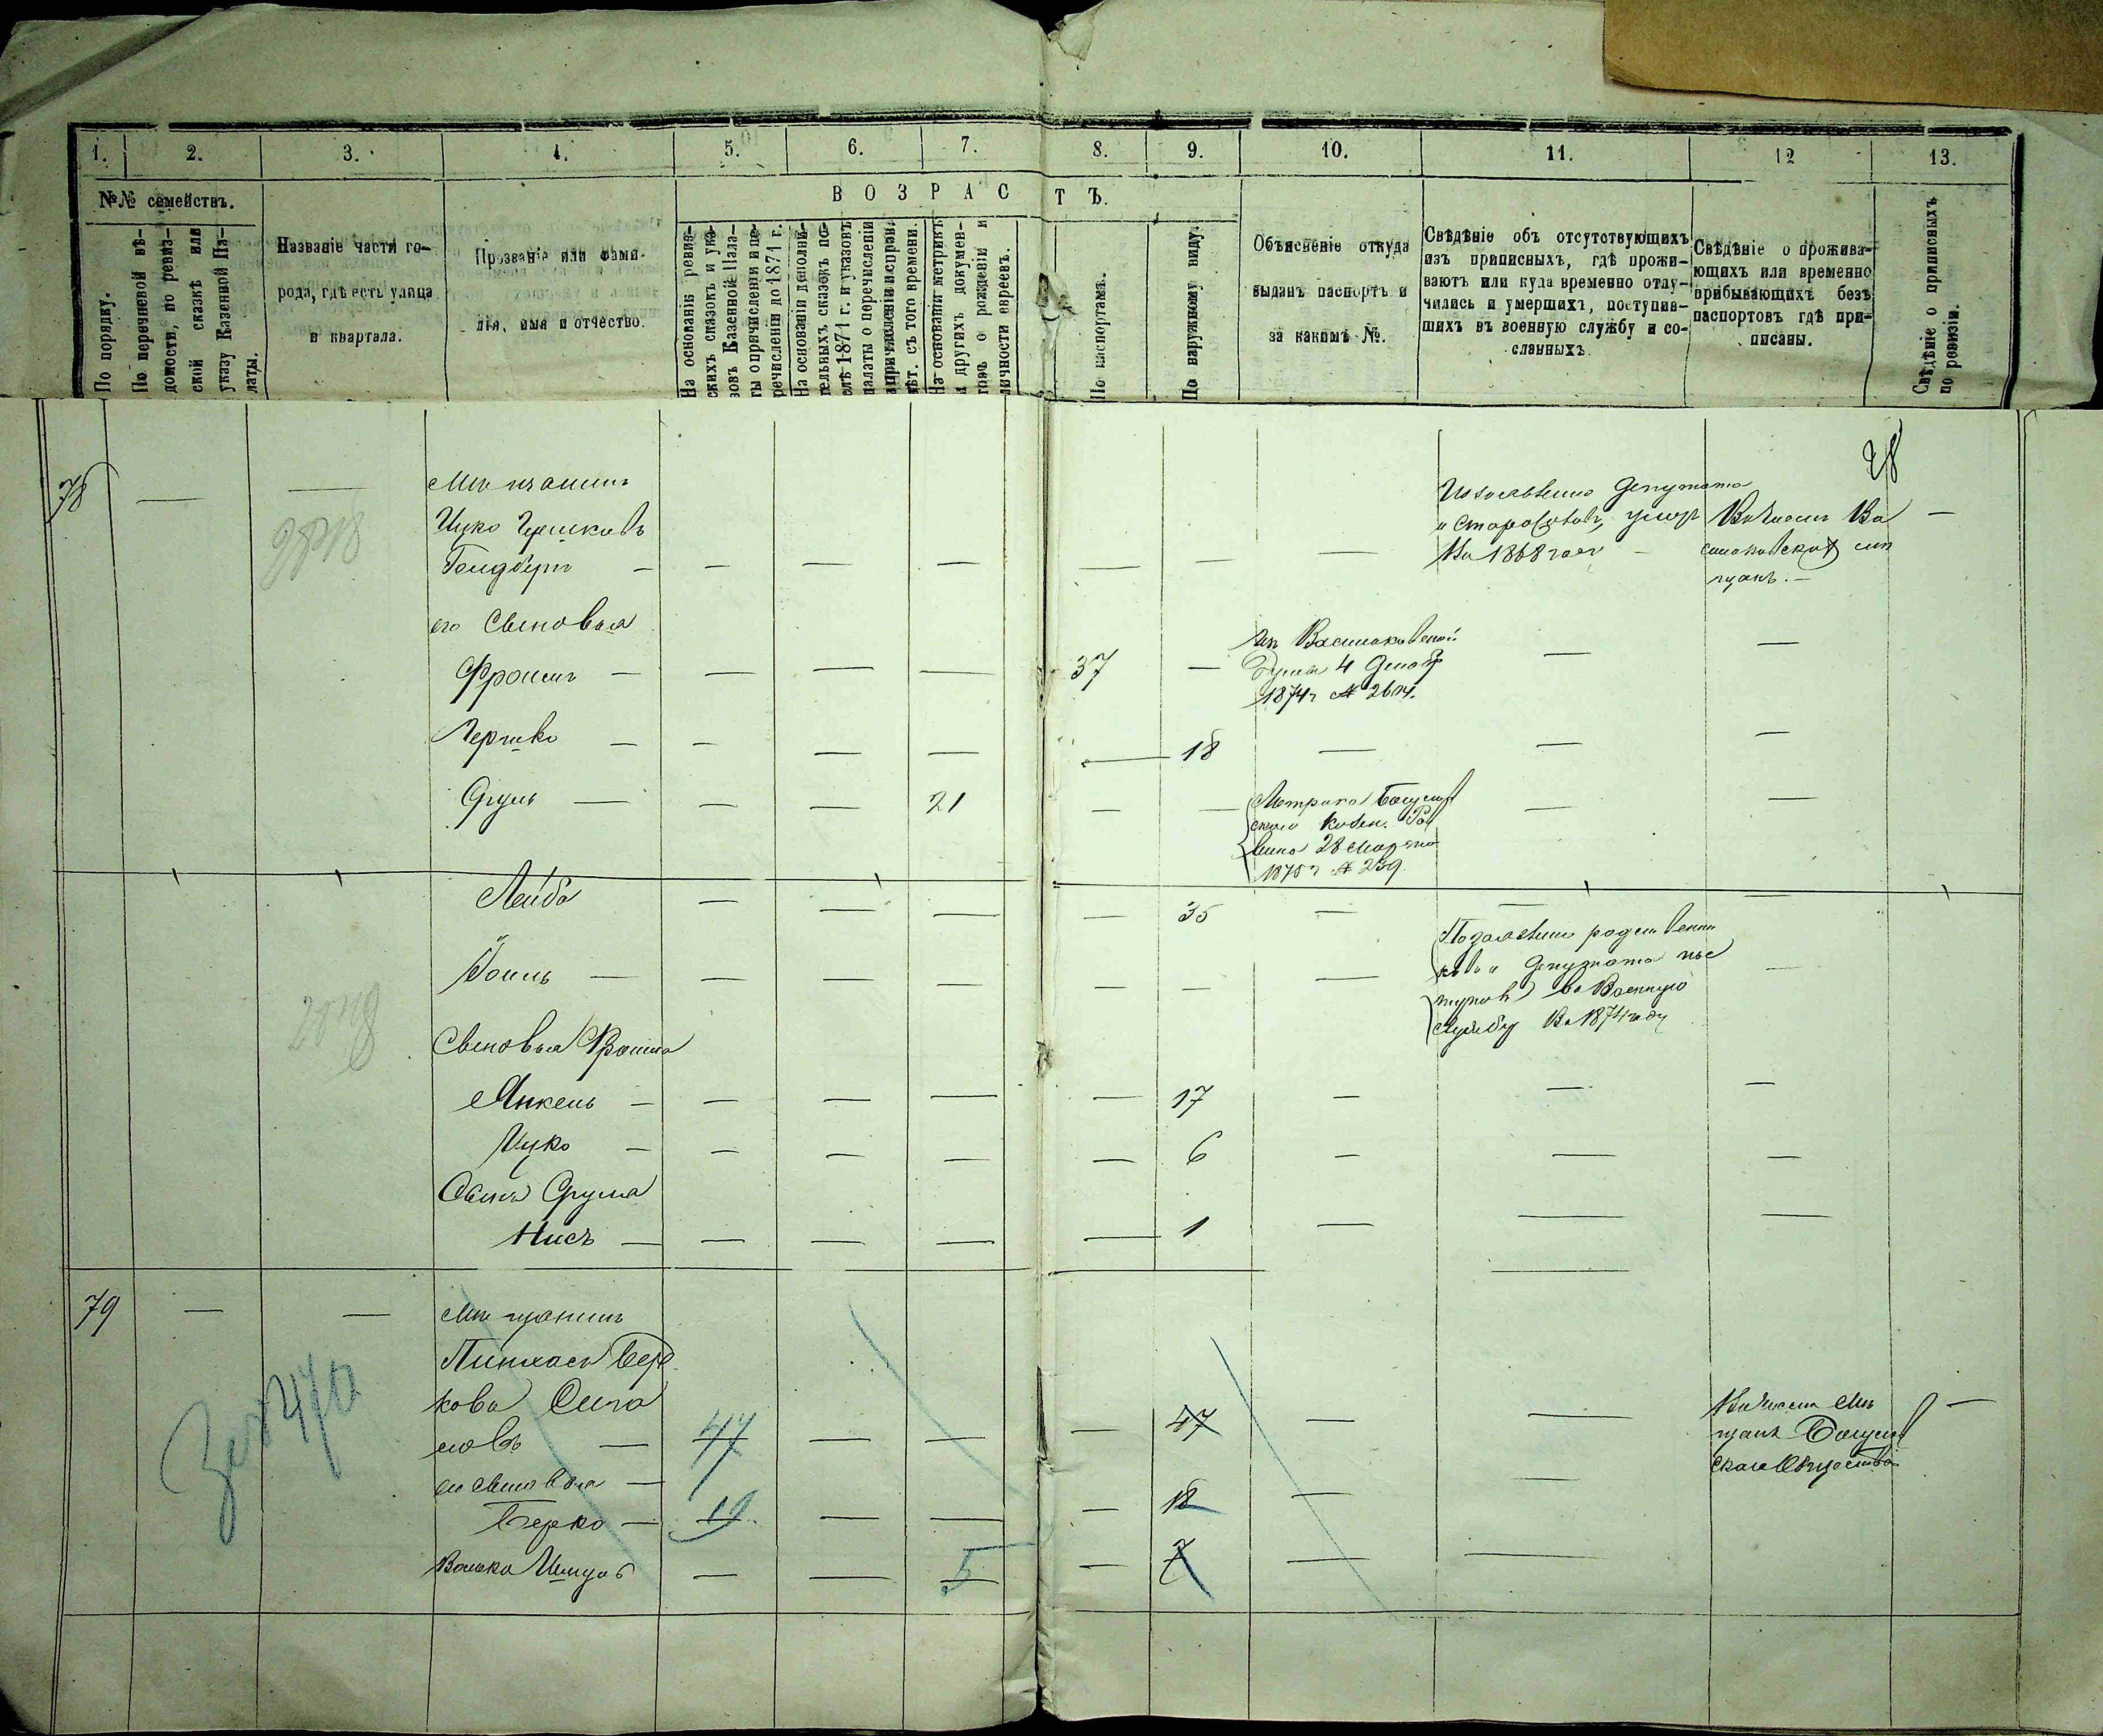 1.
2.
3.
4.
5.
6.
7.
8.
9.
10.
11.
12
13.
№№ семействъ.
ВОЗРАСТЪ.
По порядку.
По перечневой вѣ-
домости, по ревиз-
ской сказкѣ или
указу Казенной Па-
латы.
Названіе части го-
рода, гдѣ есть улица
и квартала.
Прозваніе или фами-
лія, имя и отчество.
На основаніи ревиз-
скихъ сказокъ и ука-
зовъ Казенной Пала-
ты о причисленіи и пе-
речисленіи до 1871 г.
На основаніи дополни-
тельныхъ сказокъ по-
слѣ 1871 г. и указовъ
палаты о перечисленіи
и причисленіи и справ.
лѣт. съ того времени.
На основаніи метрикъ
и другихъ докумен-
товъ о рожденіи и
личности евреевъ.
По паспортамъ.
По наружному виду.
Объясненіе откуда
выданъ паспортъ и
за какимъ №.
Свѣдѣніе объ отсутствующихъ
изъ приписныхъ, гдѣ прожи-
ваютъ или куда временно отлу-
чились и умершихъ, поступив-
шихъ въ военную службу и со-
сланныхъ.
Свѣдѣніе о прожива-
ющихъ или временно
прибывающихъ безъ
паспортовъ гдѣ при-
писаны.
Свѣдѣніе о приписныхъ
по ревизіи.
28
78 — — Мѣщанинъ
Ицко Гершковъ
Голдбергъ — — — — — — —
депутата
и умеръ
въ 1868 году —
—
его сыновья
Фроимъ — — — — 37 —
4 Декабр
1874 г № 2614.
— —
Гершко — — — — — 18 — — —
Сруль — — — 21 — —
Метрика Богуслав
скаго Казен. Рав
вина 28 Марта
1875 г № 239.
— —
Лейба — — — — 35 — — —
Іоиль — — — — — — —
родственни
ковъ и депутата пос
тупилъ въ Военную
службу въ 1874 году
—
Сыновья Фроима
Янкель — — — — — 17 — — —
Ицко — — — — — 6 — — —
Сынъ Сруля
Нисъ — — — — — 1 — — —
79 — — Мѣщанинъ
Пинхасъ Бер
ковъ — 47 — — — 47 — —
его сыновья —
Берко — 19 — — — 18 — —
Волько Шмулъ — — 5 — 7 — —
Мѣ
щанъ Богуслав
скаго Общества
—
470